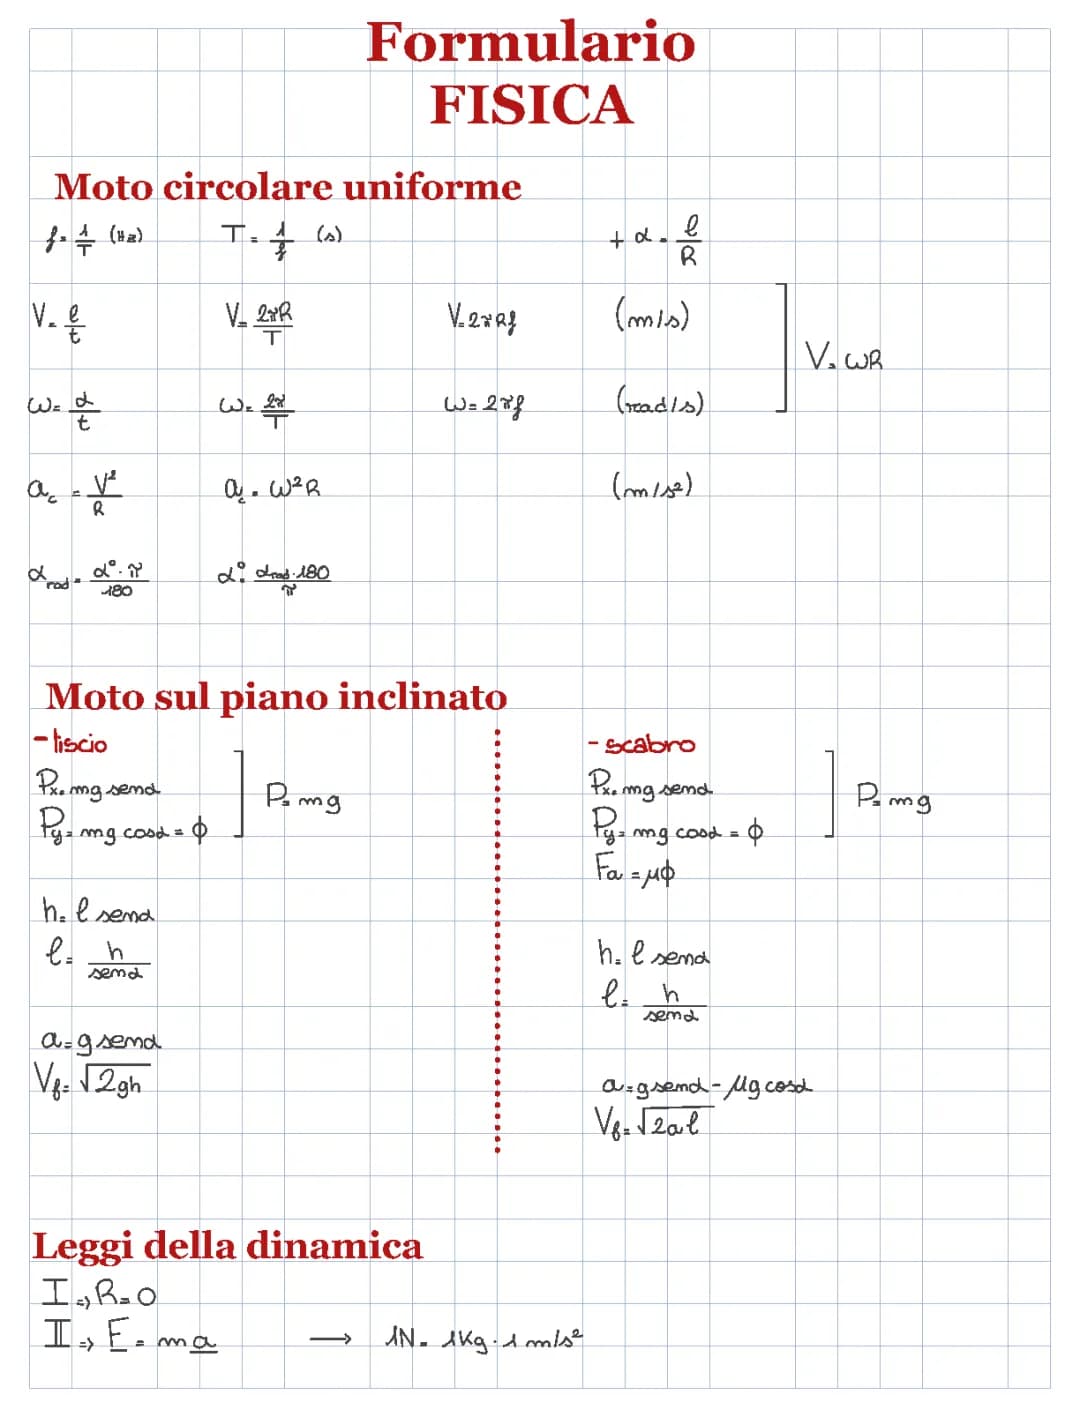 Formulario
FISICA
Moto circolare uniforme
f = 1/T (Hz) T = 1/f (s) + α = l/R
V = l/t V = 2πR/T V = 2πRf (m/s)
V = ωR
ω = α/t ω = 2π/T ω = 2πf (rad/s)
a_c = V²/R a_c = ω²R (m/s²)
α_rad = α°·π/180 α° = α_rad·180/π
Moto sul piano inclinato
- liscio
Px = mg senα
Py = mg cosα = ϕ
P = mg
h = l senα
l = h/senα
a = g senα
Vf = √2gh
- scabro
Px = mg senα
Py = mg cosα = ϕ
Fa = μϕ
P = mg
h = l senα
l = h/senα
a = g senα - μg cosα
Vf = √2al
Leggi della dinamica
I => R = 0
II => F = ma → 1N = 1Kg · 1 m/s²